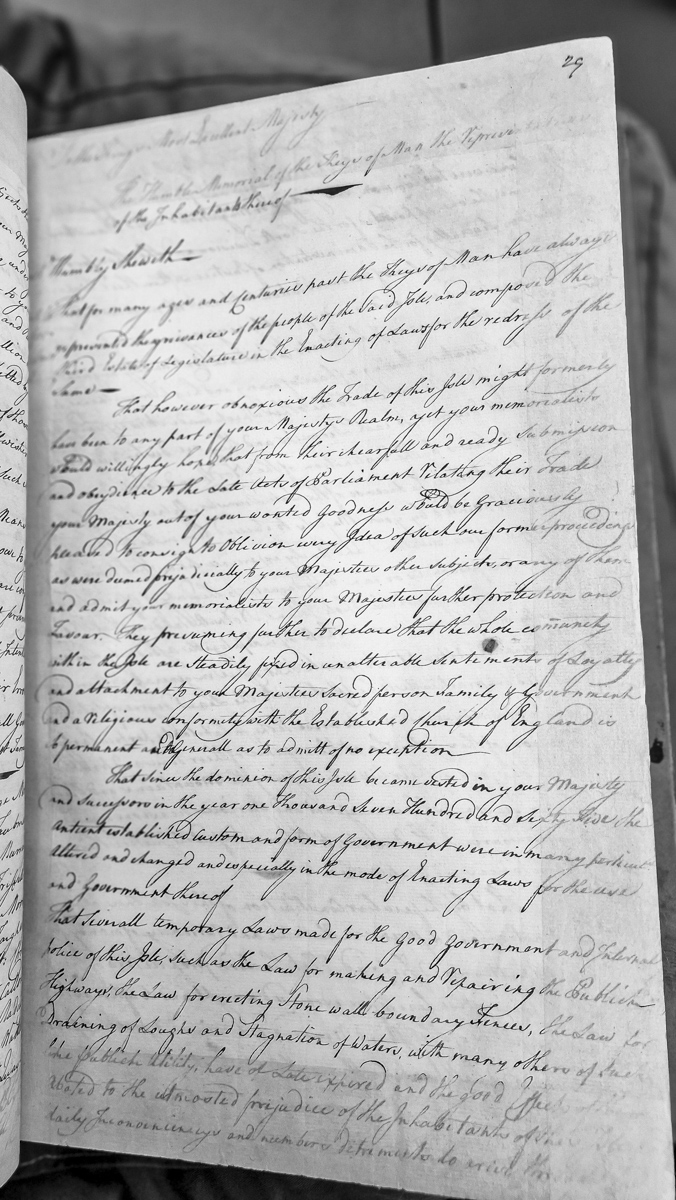 29
To the Kings Most Excellent Majesty
The Humble Memorial of the Keys of Man the Represent
of the Inhabitants thereof
Humbly Sheweth
That for many ages and Centuries past the Keys of Man have always
represented the grievances of the people of the said Isle, and composed the
third Estate of Legislature in the Enacting of Laws for the redress of the
same
That however obnoxious the Trade of this Isle might formerly
have been to any part of your Majestys Realm, yet your memorialists
would willingly hope that from their chearfull and ready submission
and obeydience to the Late Acts of Parliament Relating their Trade
your Majesty out of your wonted Goodness would be Graciously
pleased to consign to Oblivion every Idea of such our former proceedings
as were deemed prejudicially to your Majesties other subjects, or any of them
and admit your memorialists to your Majesties further protection and
Favour. They presuming further to declare that the whole comunity
within the Isle are steadily fixed in unalterable sentements of Loyalty
and attachment to your Majesties Sacred person Family & Government
and a religious conformity with the Established Church of England is
so permanent and Generall as to admitt of no exception
That since the dominion of this Isle became vested in your Majesty
and successors in the year one thousand Seven Hundred and Sixty Five the
Antient established custom and form of Government were in many particul
altered and changed and especially in the mode of Enacting Laws for the use
and Government thereof
That severall temporary Laws made for the Good Government and Internal
police of this Isle, such as the Law for making and repairing the Publick
Highways, the Law for erecting Stone wall boundary Fences, the Law for
Draining of Loughs and Stagnation of Waters, with many others of
the publick Utility, have of Late expired and the good Effects
to the utmosted prejudice of the Inhabitants of
daily Inconveniencys and numbers detriments to arise